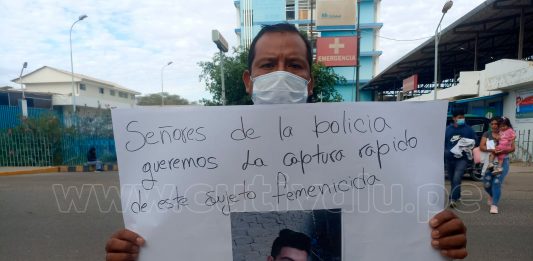 EMERGENCIA
Señores de la policia
queremos la captura rapido
de este sujeto femenicida
www.cutivalu.pe